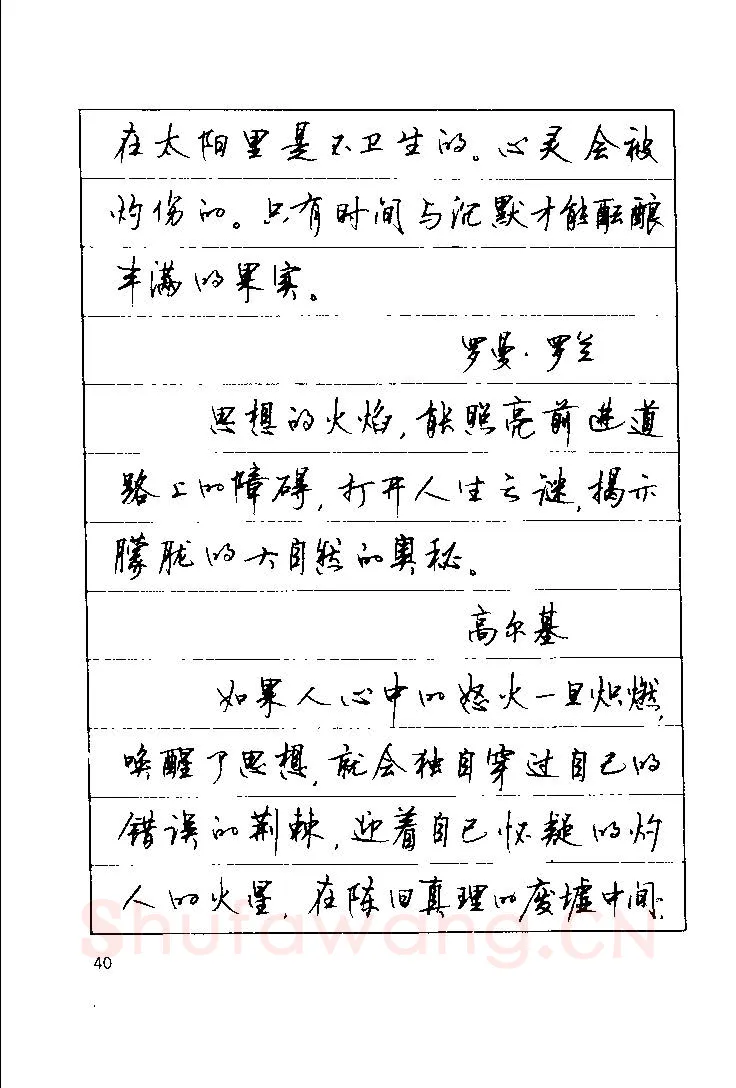 在太阳里是不卫生的。心灵会被
灼伤的。只有时间与沉默才能酝酿
丰满的果实。
罗曼·罗兰
思想的火焰,能照亮前进道
路上的障碍,打开人生之谜,揭示
朦胧的大自然的奥秘。
高尔基
如果人心中的怒火一旦炽燃,
唤醒了思想,就会独自穿过自己的
错误的荆棘,迎着自己怀疑的灼
人的火星,在陈旧真理的废墟中间,
Shufawang.CN
40